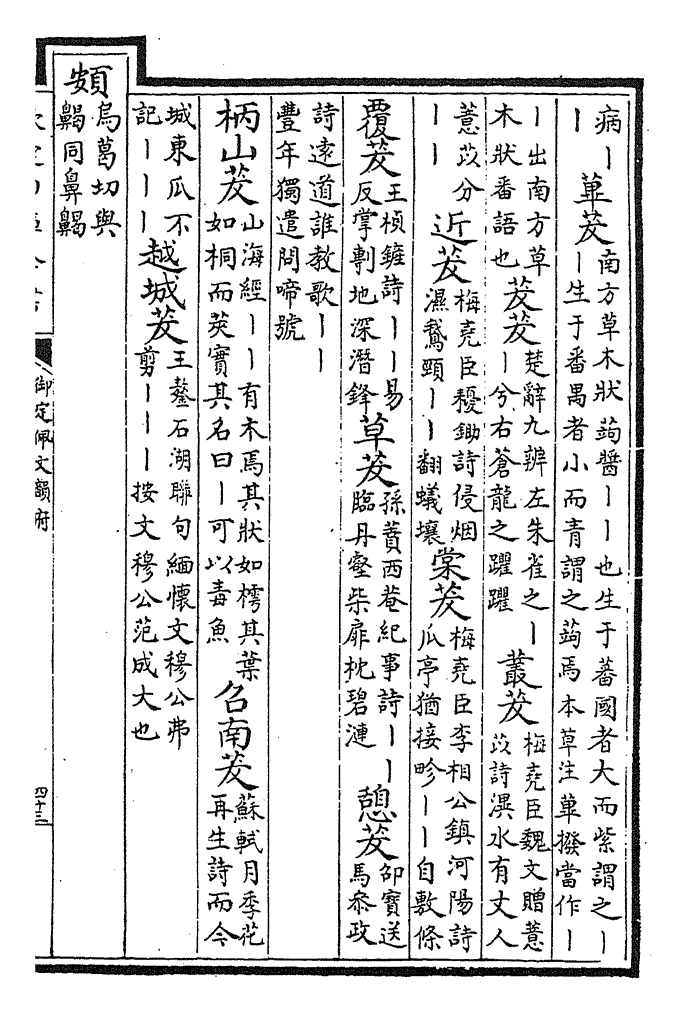 病｜｜蓽茇南方草木狀蒟醬｜｜也生于蕃國者大而紫謂之｜｜生于番禺者小而青謂之蒟焉本草注蓽撥當作｜
｜出南方草木狀番語也茇茇楚辭九辨左朱雀之｜｜兮右蒼龍之躍躍叢茇梅堯臣魏文贈薏苡詩淇水有丈人
薏苡分｜｜近茇梅堯臣耰鋤詩侵烟濕鵞頸｜｜翻蟻壤棠茇梅堯臣李相公鎮河陽詩瓜亭猶接畛｜｜自敷條
覆茇王楨钁詩｜｜易反掌劃地深潛鋒草茇孫蕡西菴紀事詩｜｜臨丹壑柴扉枕碧漣憩茇邵寶送馬叅政
詩遠道誰教歌｜｜豐年獨遣問啼號
柄山茇山海經｜｜有木焉其狀如樗其葉如桐而莢實其名曰｜可以毒魚召南茇蘇軾月季花再生詩而今
城東瓜不記｜｜｜越城茇王鏊石湖聯句緬懷文穆公弗剪｜｜｜按文穆公范成大也
頞烏葛切與齃同鼻齃
御定佩文韻府
四十三